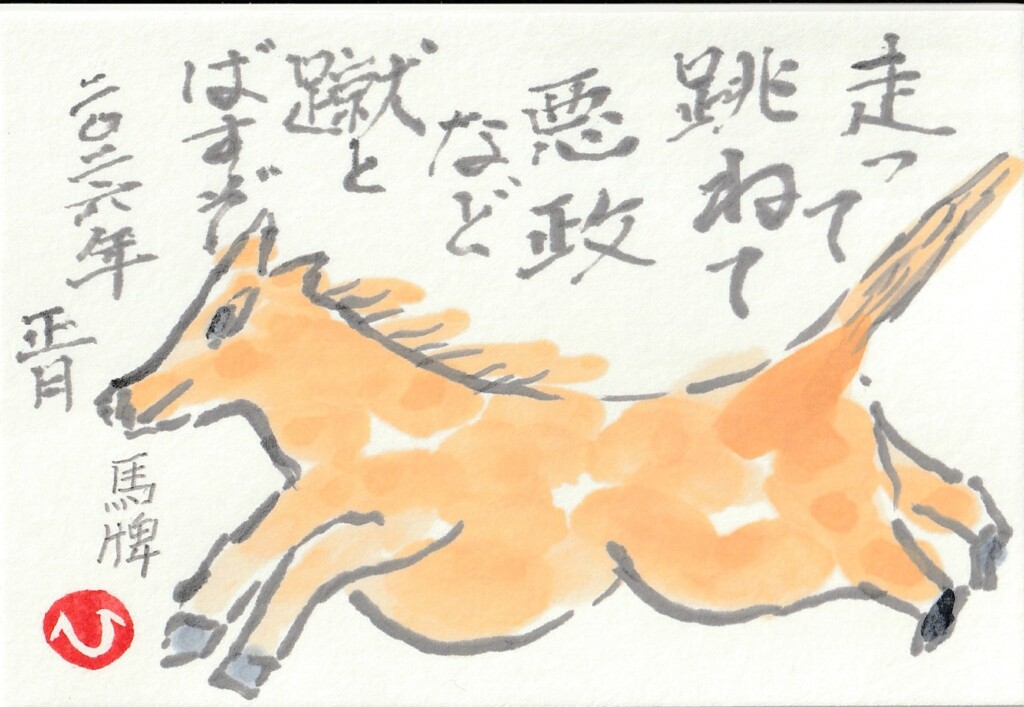 走って
跳ねて
悪政
など
蹴と
ばすぞ
二〇二六年
正月
馬牌
ひ